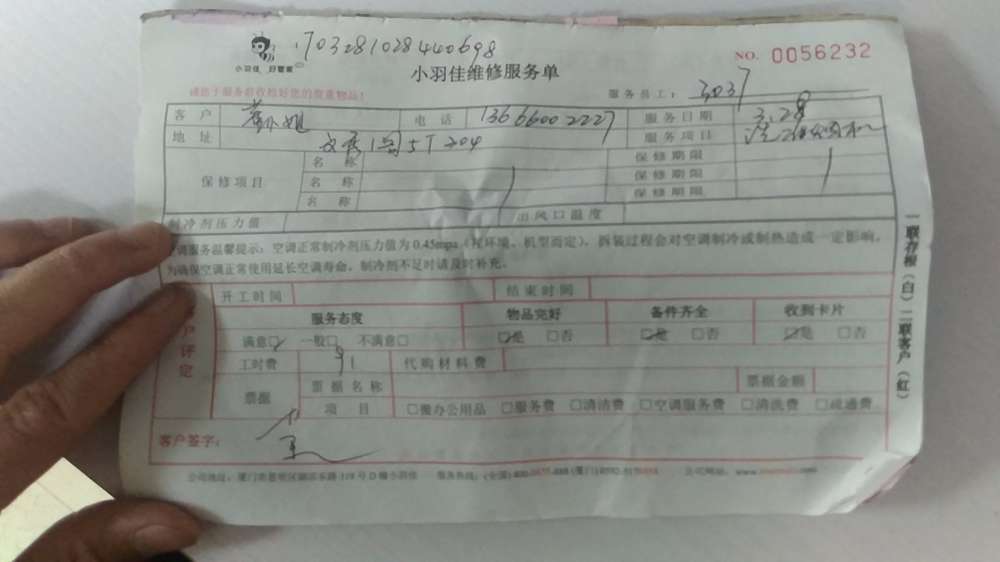 703281028440698
小羽佳 好管家
小羽佳维修服务单
NO. 0056232
请您于服务前收检好您的贵重物品!
服务员工: 3037
客户 小姐 电话 13666002227 服务日期 3.28
地址 5T 204 服务项目
保修项目 名称 保修期限
名称 保修期限
名称 保修期限
制冷剂压力值 出风口温度
空调服务温馨提示:空调正常制冷剂压力值为0.45mpa(视环境、机型而定),拆装过程会对空调制冷或制热造成一定影响,
为确保空调正常使用延长空调寿命,制冷剂不足时请及时补充。
客户评定
开工时间 结束时间
服务态度 物品完好 备件齐全 收到卡片
满意□ 一般□ 不满意□ □是 □否 □是 □否 □是 □否
工时费 91 代购材料费
票据 票据名称 票据金额
项目 □搬办公用品 □服务费 □清洁费 □空调服务费 □清洗费 □疏通费
客户签字:
一联存根(白)二联客户(红)
公司网址: